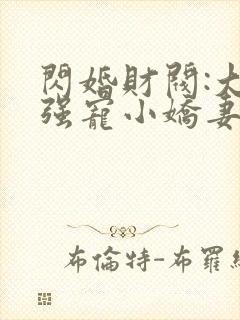 閃婚財閥:大
强寵小嬌妻
布倫特-布羅